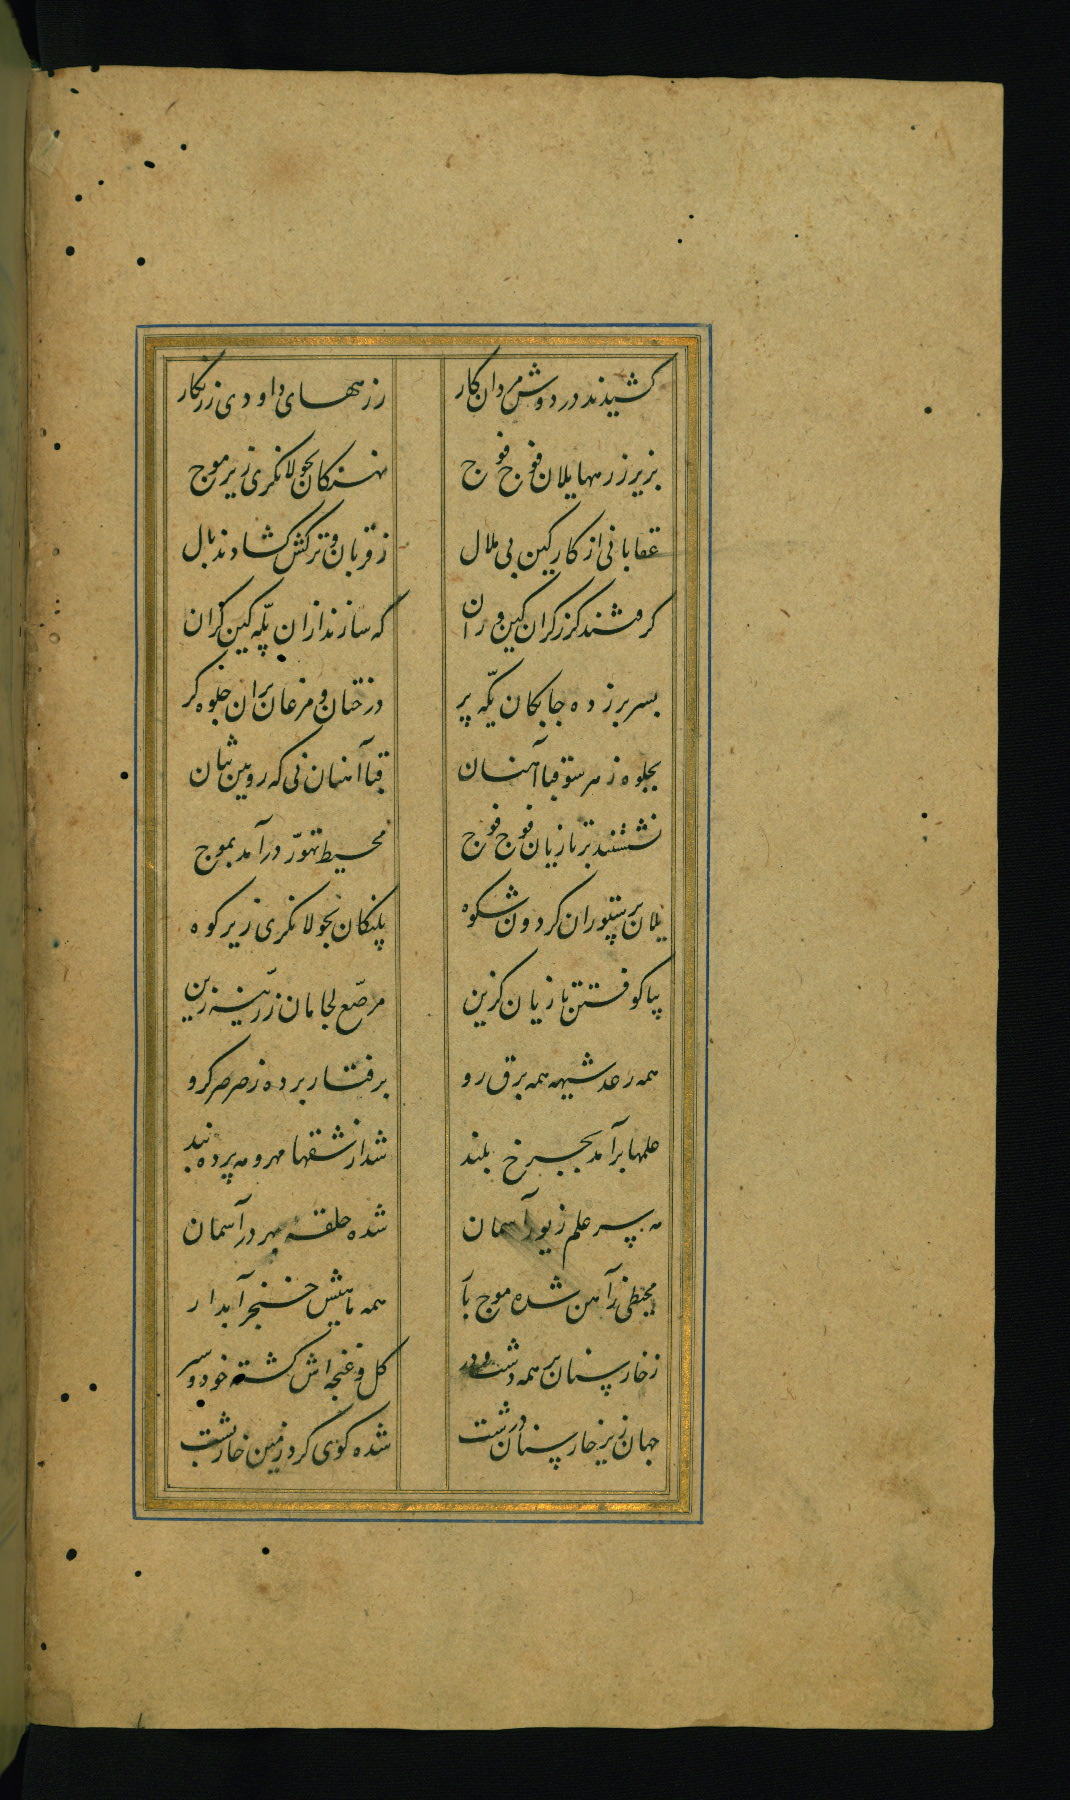 کشیدند در دوش مردان کار زرههای داودی زرنکار
بزیر زرهها یلان فوج فوج نهنکان بجولانکری زیر موج
عقابانی از کار کین بی ملال ز قربان و ترکش کشادند بال
کرفتند کرز کران کین وران که سازند ازان پله کین کران
بسر بر زده جابکان یکه پر درختان و مرغان بران جلوه کر
بجلوه ز هر سو قبا آهنان قبا آهنان نی که رویین تنان
نشستند بر تازیان فوج فوج محیط تهور درآمد بموج
یلان بر ستوران کردون شکوه پلنکان بجولانکری زیر کوه
بپا کوفتن تازیان کزین مرصع لجامان زرینه زین
همه رعد شیهه همه برق رو برفتار برده ز صرصر کرو
علمها برآمد بجرخ بلند شد از شقها مهر و مه پرده بند
مه سر علم زیور آسمان شده حلقه مهر در آسمان
محیطی ز آهن شده موج بآ همه ماهیش خنجر آبدار
ز خار سنان بر همه دشت و در کل و غنجه اش کشته خود و سر
جهان زیر خار سنان درشت شده کوی کرد زمین خاربشت